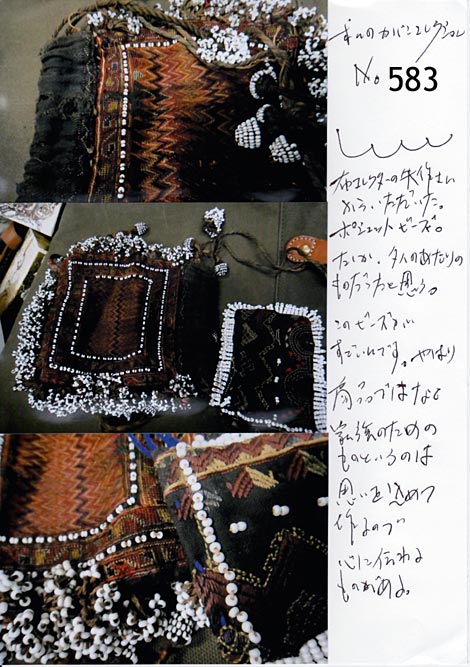 私のカバンコレクション
No. 583
布コレクターの矢作さん
からいただいた。
ポシェットビーズ。
たしか、タイのあたりの
ものだったと思う。
このビーズが
すごいんです。やはり
商って"はなく
家族のための
ものというのは
思いを込めて
作るので
心に伝わる
ものがある。